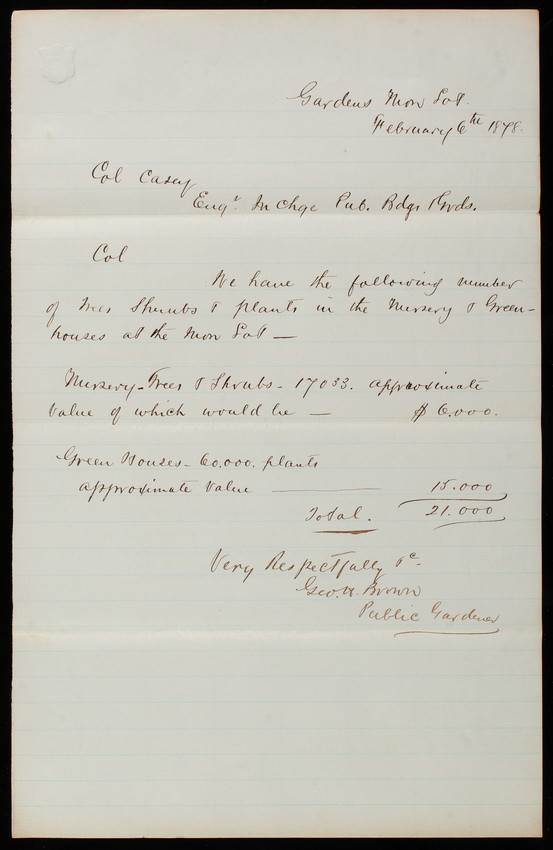 Gardens Mon Lot.
February 6th 1878.
Col Casey
Engr In Chge Pub. Bdgs Grds.
Col
We have the following number
of Trees Shrubs & plants in the Nursery & Green-
houses at the Mon Lot —
Nursery - Trees & Shrubs - 17033. approximate
value of which would be — $ 6.000.
Green Houses - 60.000. plants
approximate value — 15.000
Total. 21.000
Very Respectfully &c.
Geo. H. Brown
Public Gardener